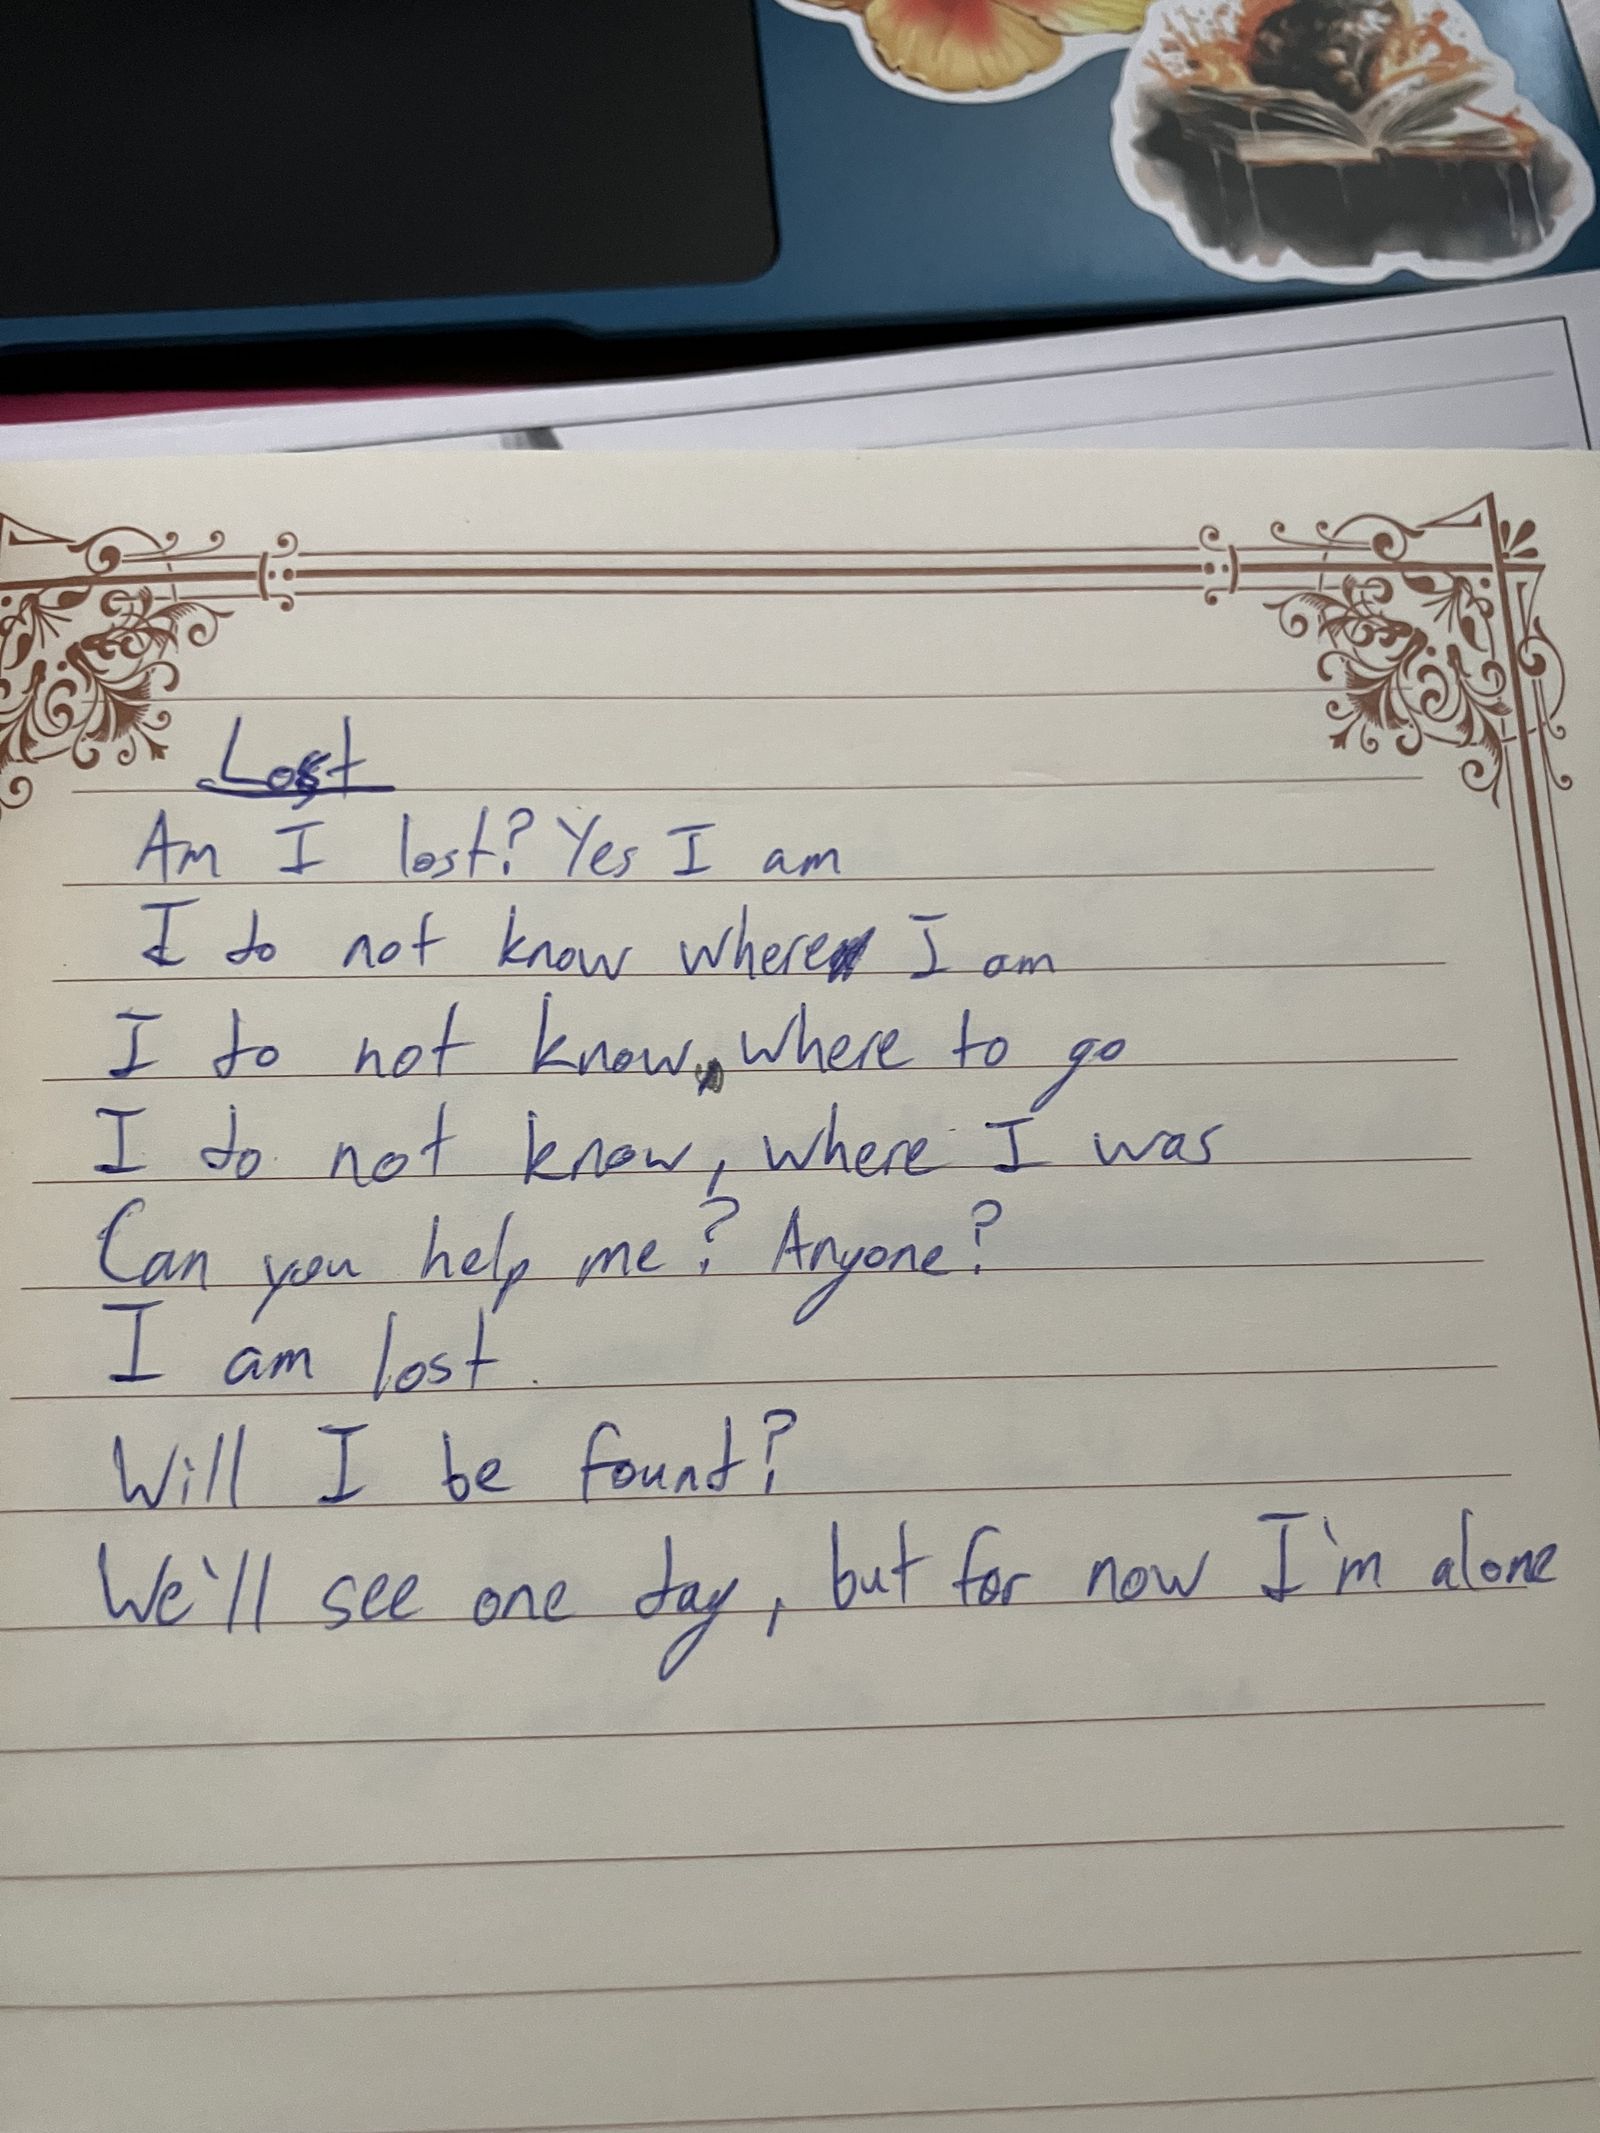 Lost
Am I lost? Yes I am
I do not know where I am
I do not know, where to go
I do not know, where I was
Can you help me? Anyone?
I am lost.
Will I be found?
We'll see one day, but for now I'm alone